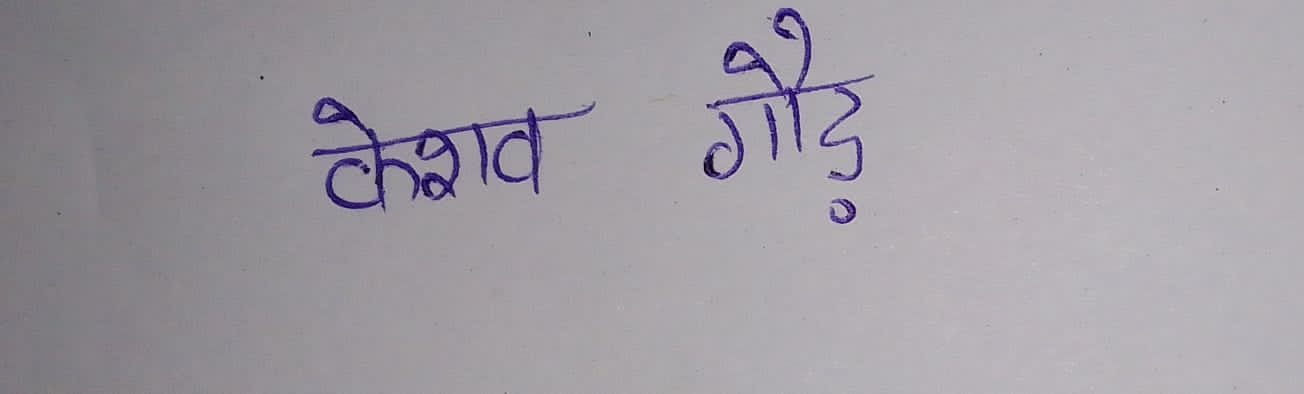 केशव गौड़